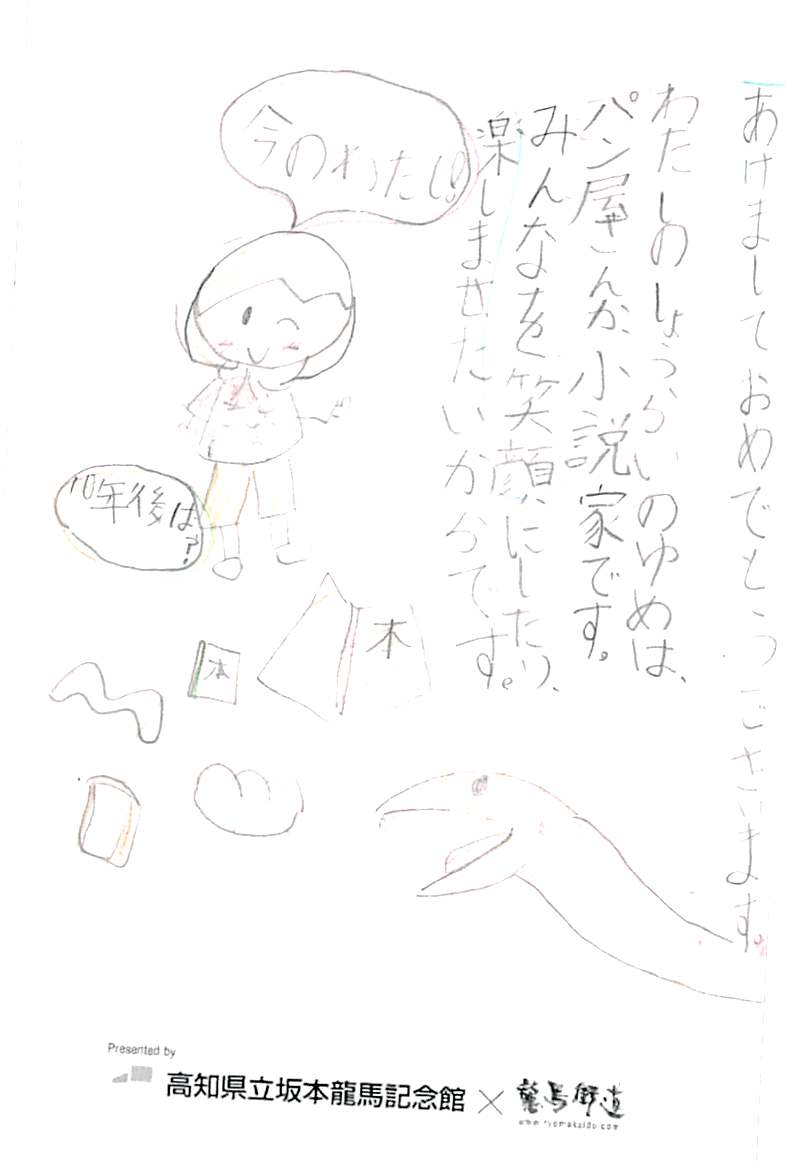 あけましておめでとうございます。
わたしのしょうらいのゆめは、
パン屋さんか、小説家です。
みんなを笑顔にしたり、
楽しませたいからです。
今のわたし!
10年後は?
本
本
Presented by
高知県立坂本龍馬記念館×龍馬街道
www.ryomakaido.com